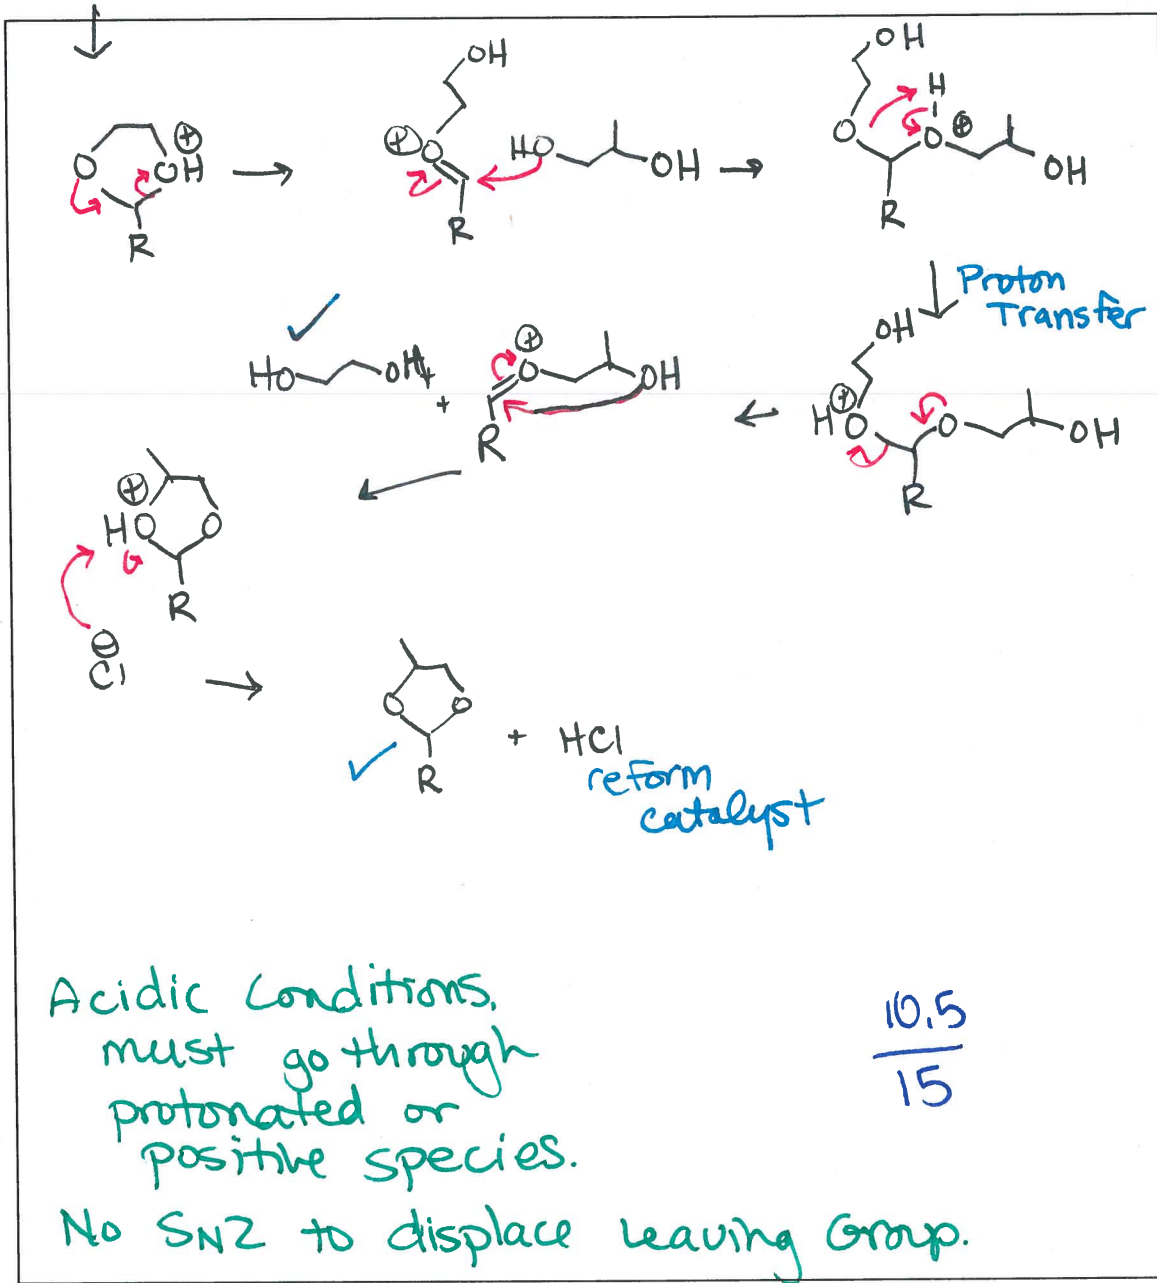 OH
OH
⊕
O
OH
R
⊕
O
HO
OH
R
H
O
O
⊕
OH
R
Proton
Transfer
OH
H
⊕
O
O
OH
R
HO
OH
+
⊕
O
OH
R
⊕
HO
O
R
⊖
Cl
O
O
R
+ HCl
reform
catalyst
Acidic Conditions,
must go through
protonated or
positive species.
No SN2 to displace Leaving Group.
10.5
15